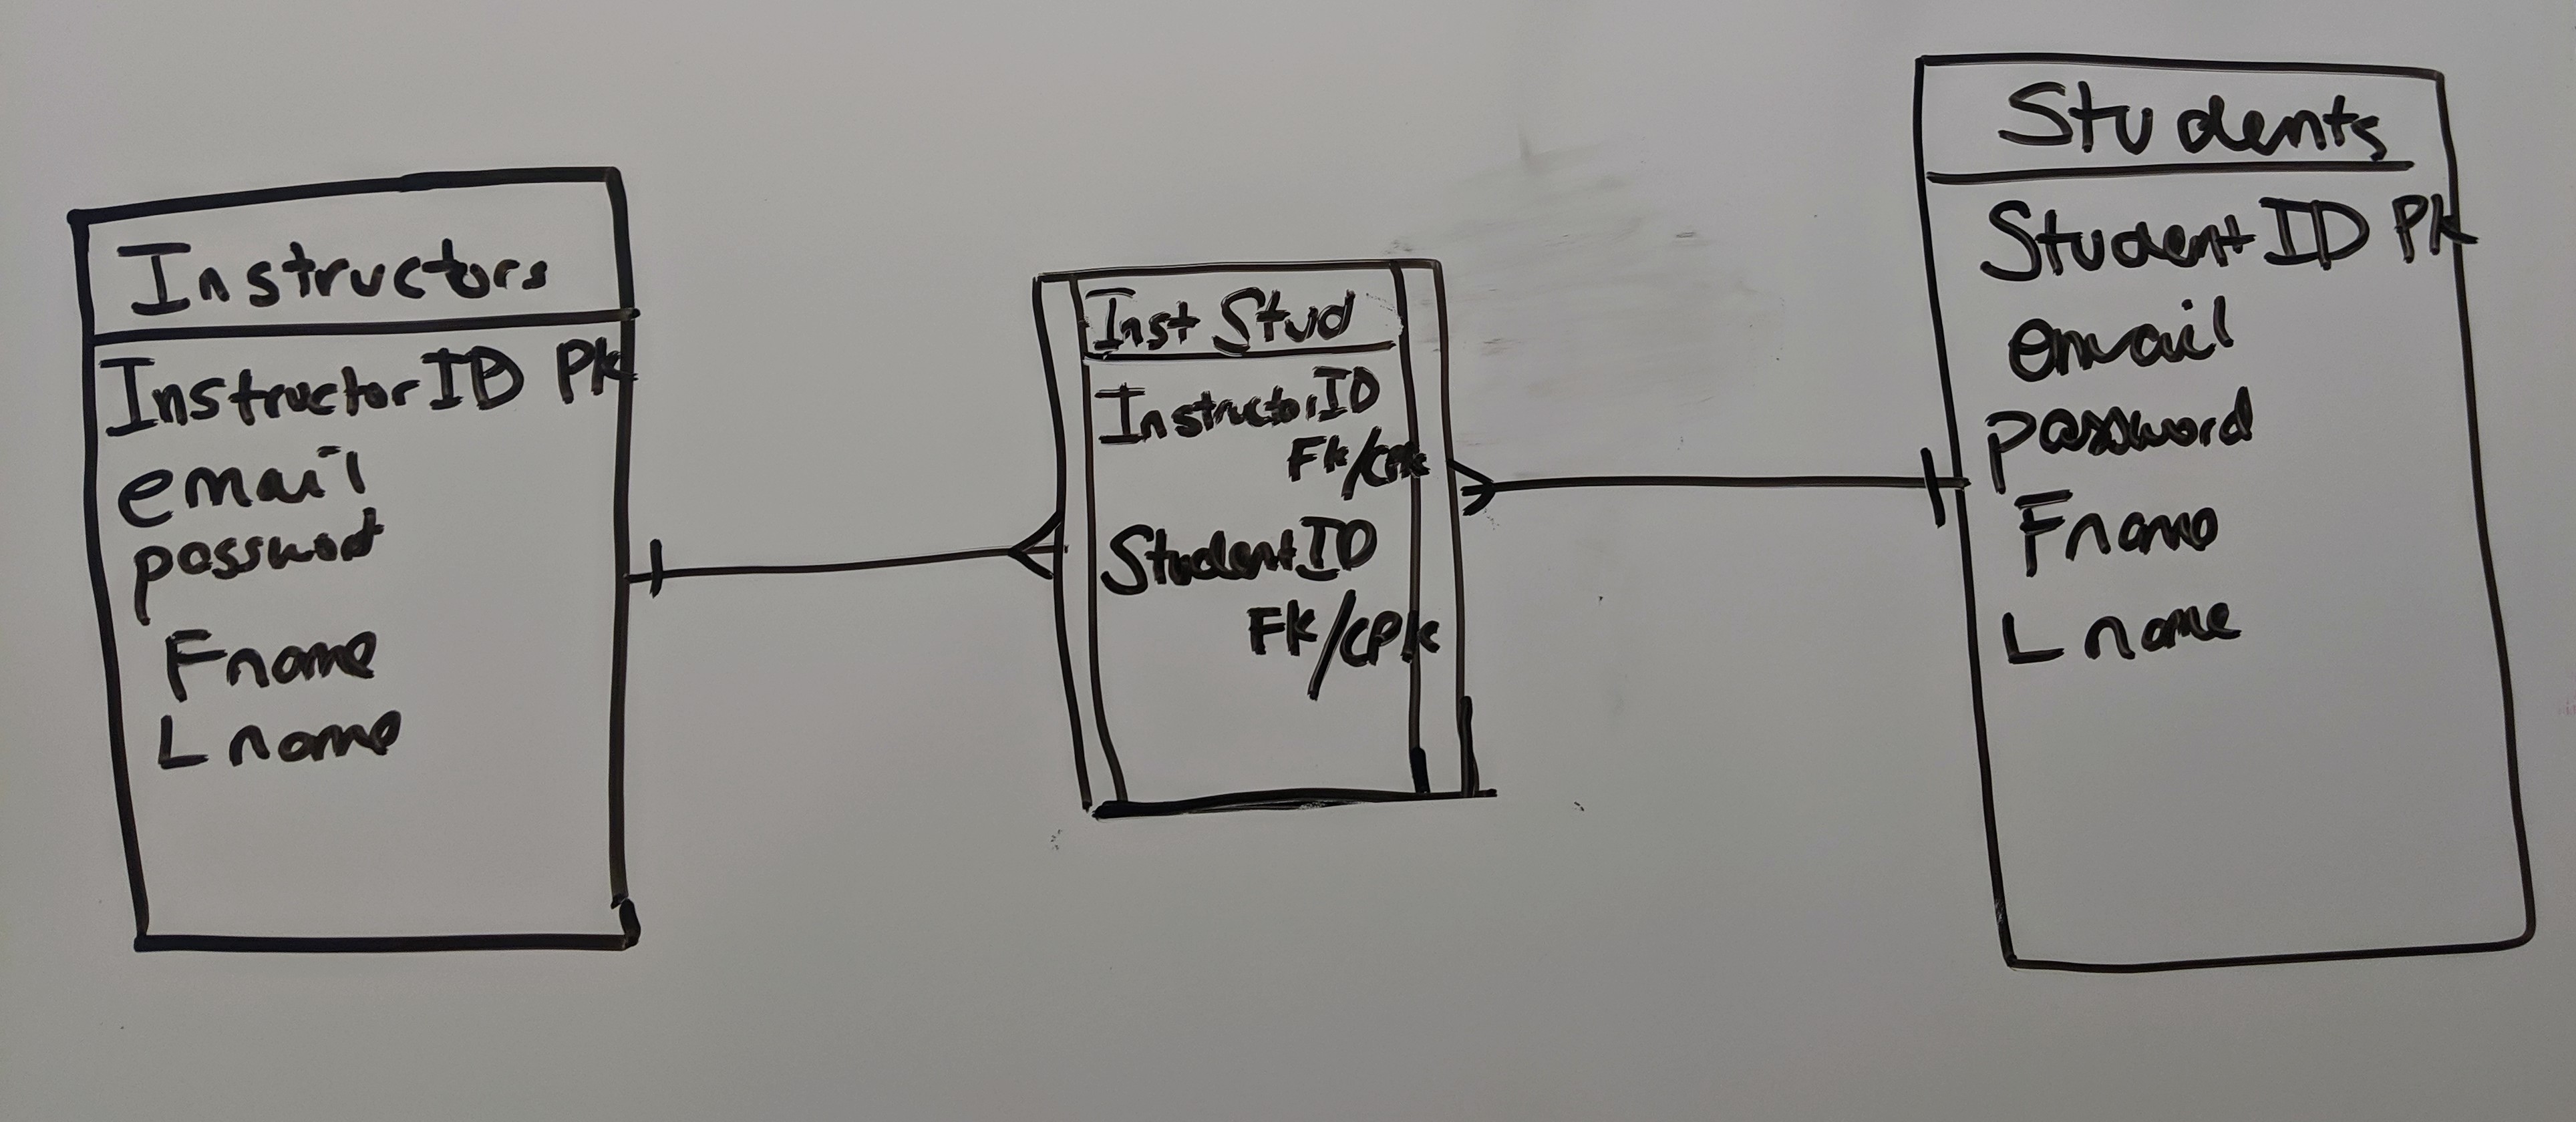 Instructors
InstructorID PK
email
password
Fname
Lname
Inst Stud
InstructorID
FK/CPK
StudentID
FK/CPK
Students
StudentID PK
email
password
Fname
Lname